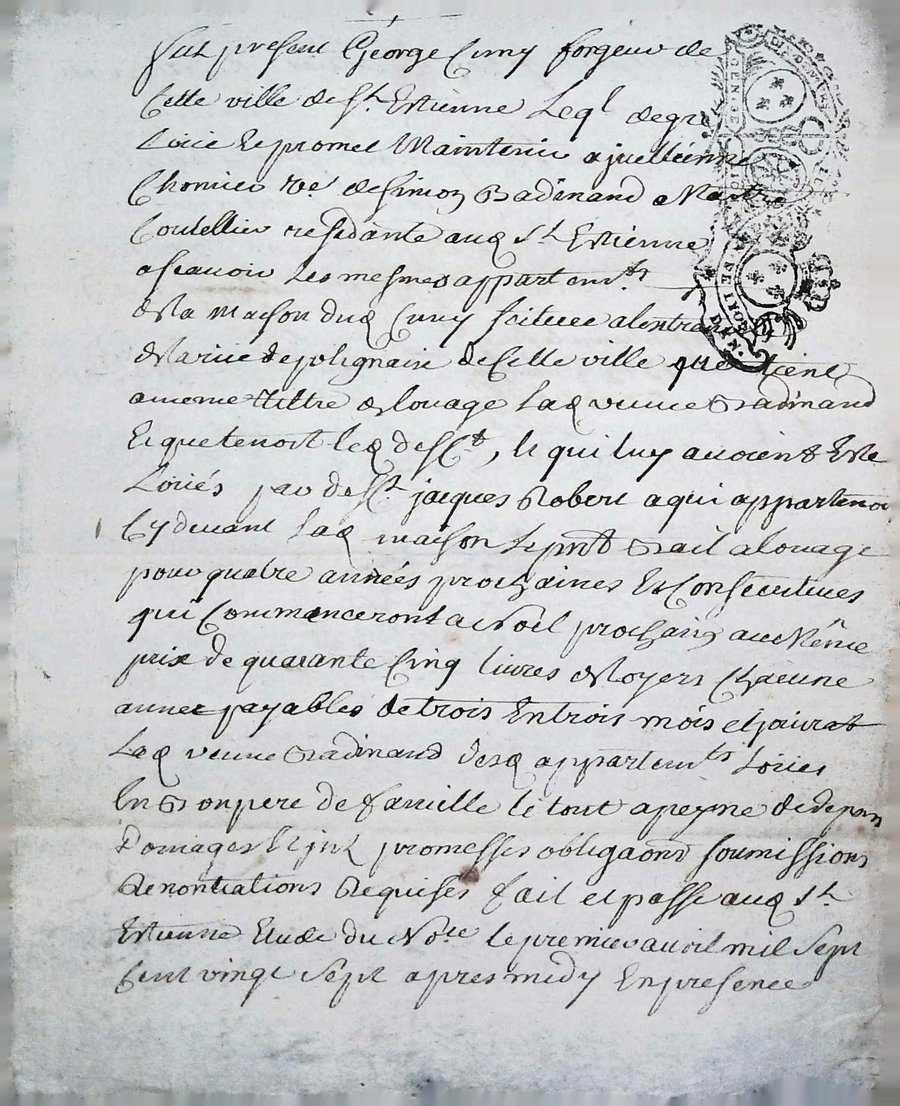 fut present George Cuny forgeur de
Cette ville de St. Estienne Leql de gré
Loüe et promet Maintenir a
Chomier ve. de Simon Badinand Maitre
Coutellier residante aud St. Estienne
ascavoir Les mesmes appartemts
de la maison dud Cuny scituee a lentrant
de la rüe de polignaire de Cette ville que tient
au meme tiltre de louage Lad veuve Badinand
Et que tenoit led defft, et qui luy avoient Esté
Loüés par defft jacques Robert a qui appartenoi
Cy devant Lad maison Le pnt Bail a louage
pour quatre années prochaines Et Consecutives
qui Commanceront a Noël prochain au Même
prix de quarante Cinq livres de Loyers Chacune
année payables de trois En trois mois et joüira
Lad veuve Badinand desd appartemts Loües
En Bon pere de famille le tout a peyne de depens
Domages promesses obligaons soumissions
Renontiations Requises fait et passé aud St.
Estienne Etude du Nore le premier avril mil Sept
Cent vingt Sept apres midy En presence
GEN DE